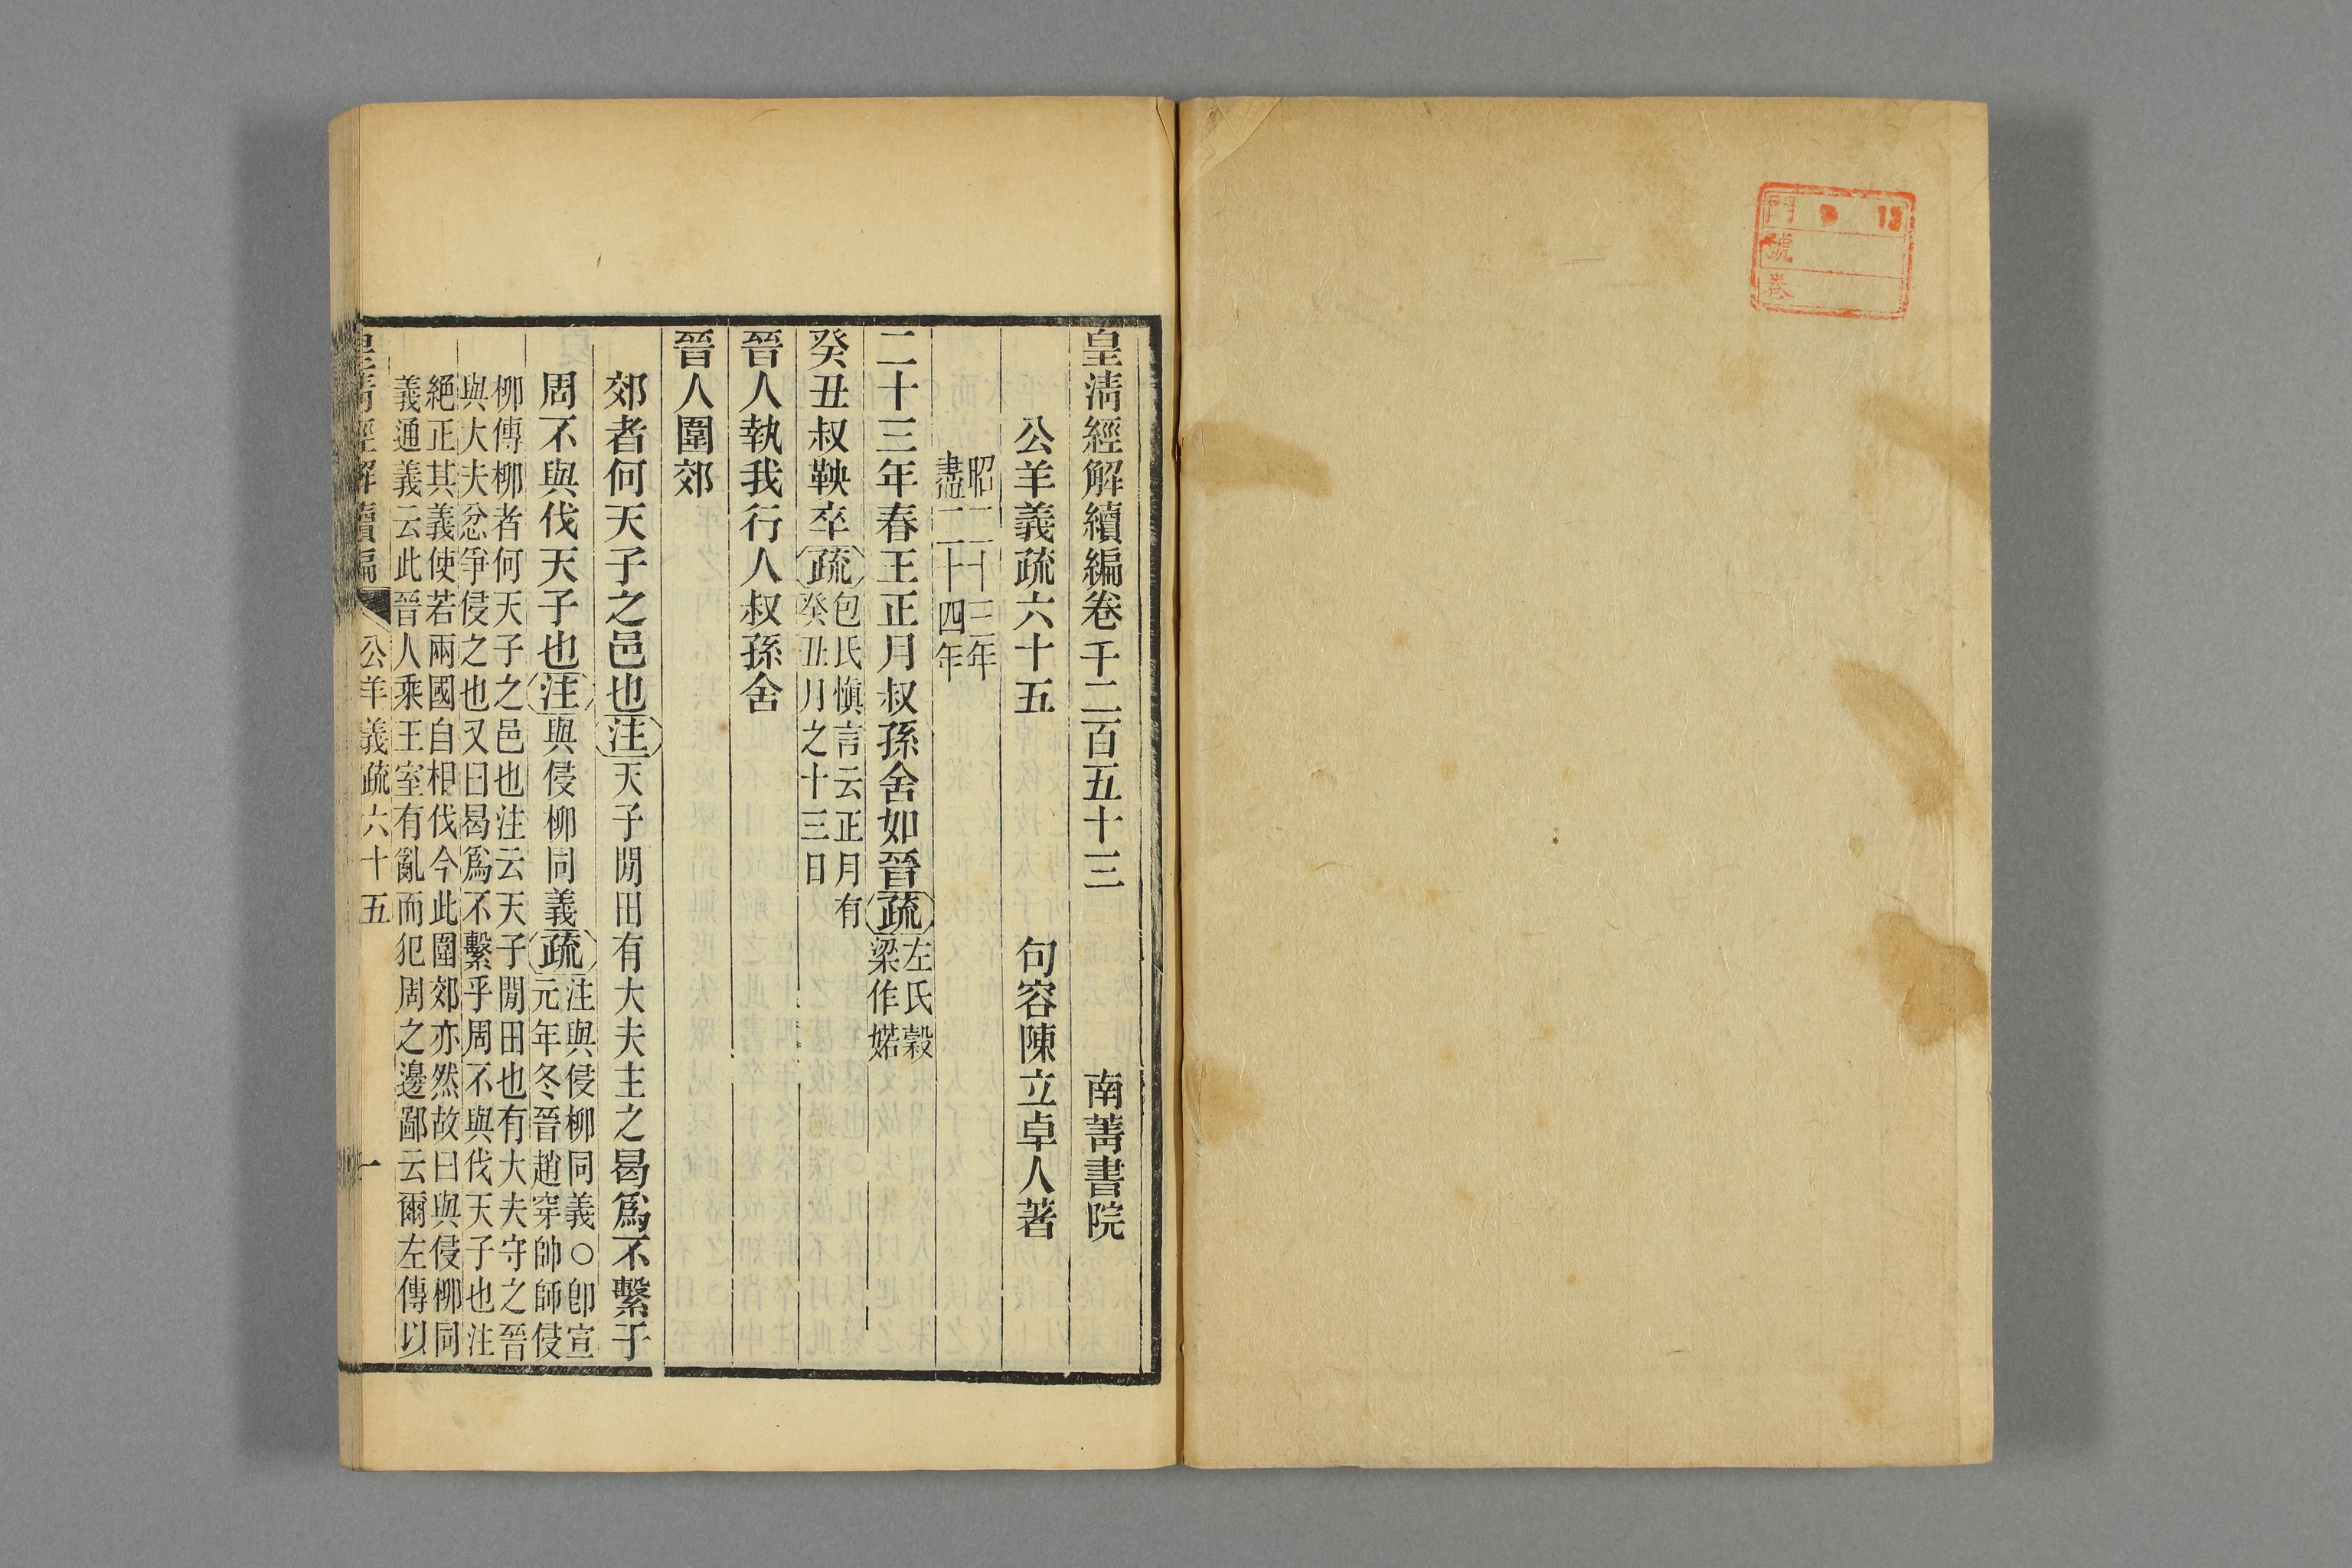 門 13
號
卷
皇清經解續編卷千二百五十三 南菁書院
公羊義疏六十五 句容陳立卓人著
昭二十三年
盡二十四年
二十三年春王正月叔孫舍如晉疏左氏穀
梁作婼
癸丑叔鞅卒疏包氏愼言云正月有
癸丑月之十三日
晉人執我行人叔孫舍
晉人圍郊
郊者何天子之邑也注天子閒田有大夫主之曷爲不繫于
周不與伐天子也注與侵柳同義疏注與侵柳同義○卽宣
元年冬晉趙穿帥師侵
柳傳柳者何天子之邑也注云天子閒田也有大夫守之晉
與大夫忿爭侵之也又曰曷爲不繫乎周不與伐天子也注
絕正其義使若兩國自相伐今此圍郊亦然故曰與侵柳同
義通義云此晉人乘王室有亂而犯周之邊鄙云爾左傳以
皇清經解續編 公羊義疏六十五 一